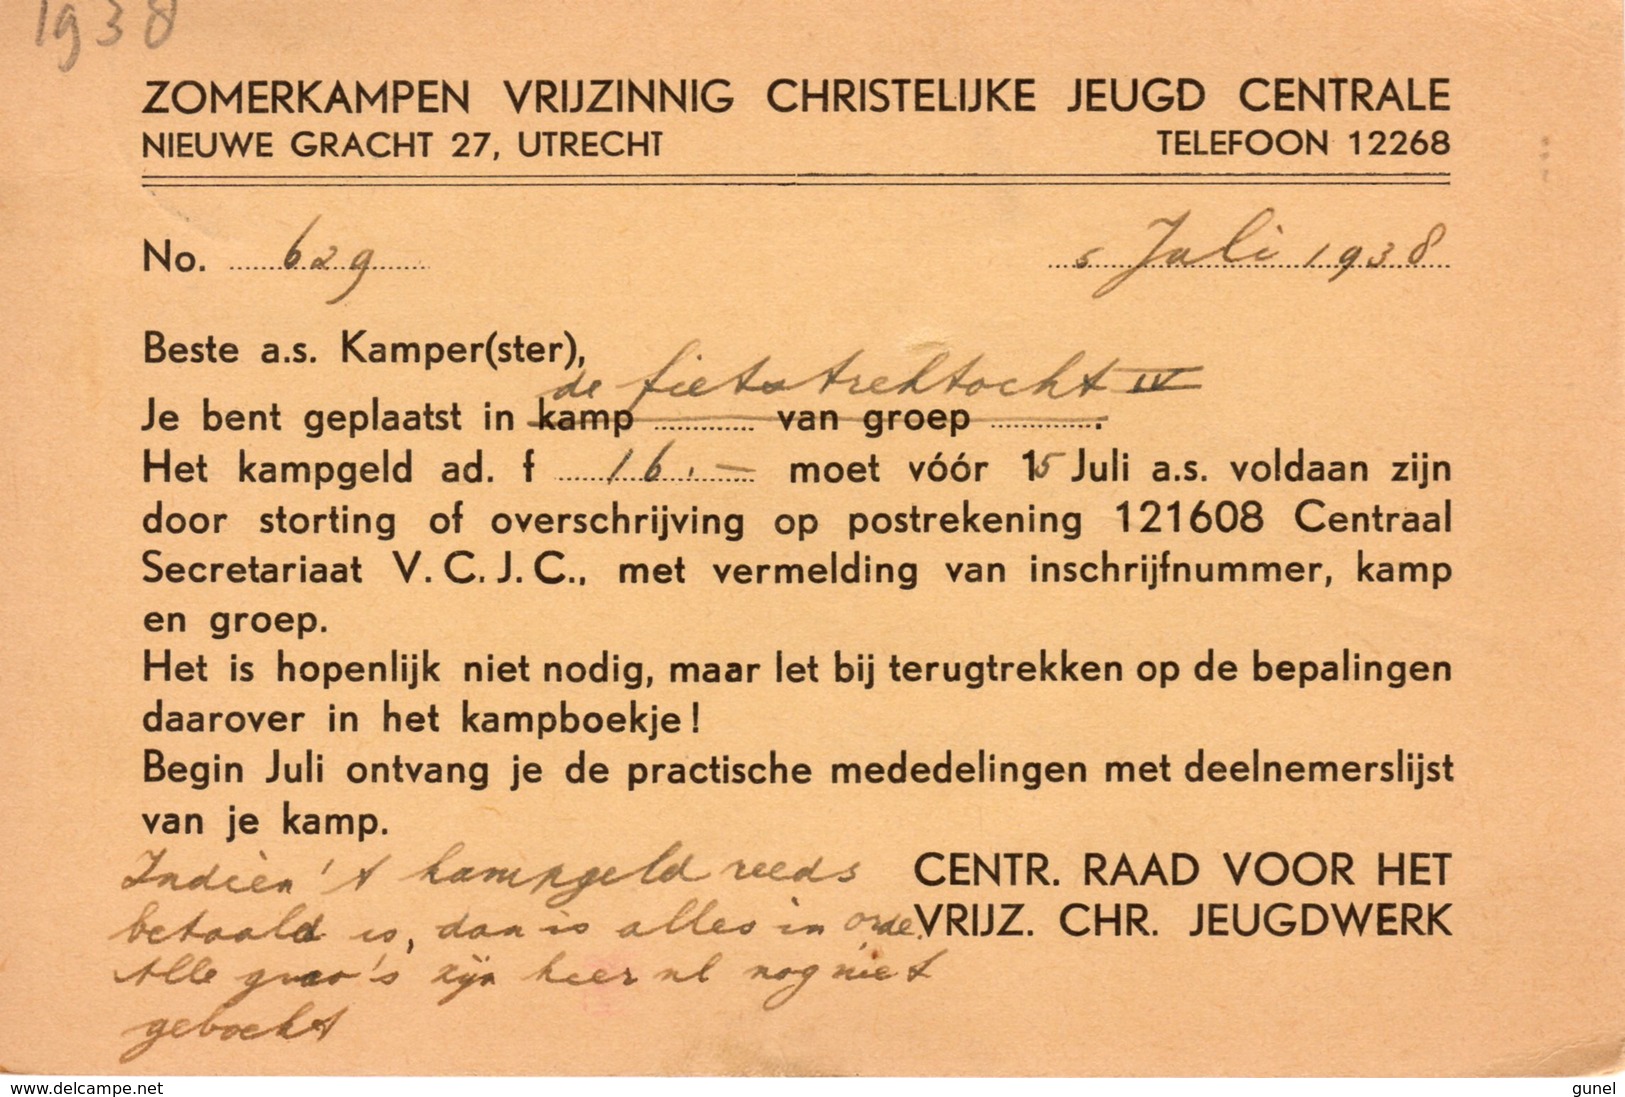 1938
ZOMERKAMPEN VRIJZINNIG CHRISTELIJKE JEUGD CENTRALE
NIEUWE GRACHT 27, UTRECHT TELEFOON 12268
No. 629 5 Juli 1938
Beste a.s. Kamper(ster),
de fietstrektocht IV
Je bent geplaatst in kamp van groep
Het kampgeld ad. f 16.— moet vóór 15 Juli a.s. voldaan zijn
door storting of overschrijving op postrekening 121608 Centraal
Secretariaat V.C.J.C., met vermelding van inschrijfnummer, kamp
en groep.
Het is hopenlijk niet nodig, maar let bij terugtrekken op de bepalingen
daarover in het kampboekje!
Begin Juli ontvang je de practische mededelingen met deelnemerslijst
van je kamp.
Indien 't kampgeld reeds
betaald is, dan is alles in orde.
Alle giro's zijn hier nl nog niet
geboekt
CENTR. RAAD VOOR HET
VRIJZ. CHR. JEUGDWERK
www.delcampe.net
gunel